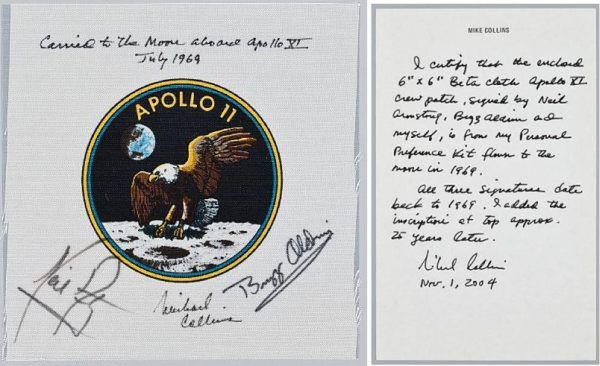 Carried to the Moon aboard Apollo XI
July 1969
APOLLO 11
Neil
Michael
Collins
Buzz Aldrin
MIKE COLLINS
I certify that the enclosed
6" x 6" Beta cloth Apollo XI
crew patch, signed by Neil
Armstrong, Buzz Aldrin and
myself, is from my Personal
Preference Kit flown to the
moon in 1969.
All three signatures date
back to 1969. I added the
inscription at top approx.
25 years later.
Michael Collins
Nov. 1, 2004